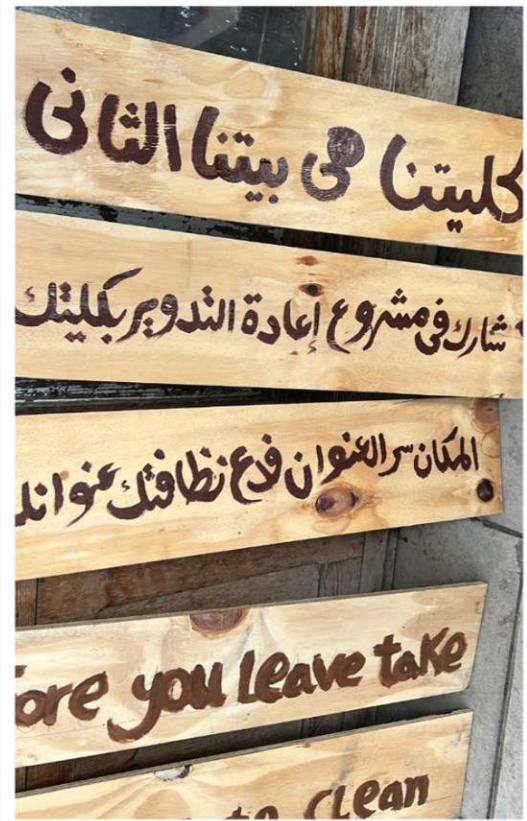 كليتنا هى بيتنا الثانى
شارك فى مشروع إعادة التدوير بكليتك
المكان سر العنوان فدع نظافتك
you leave take
to clean